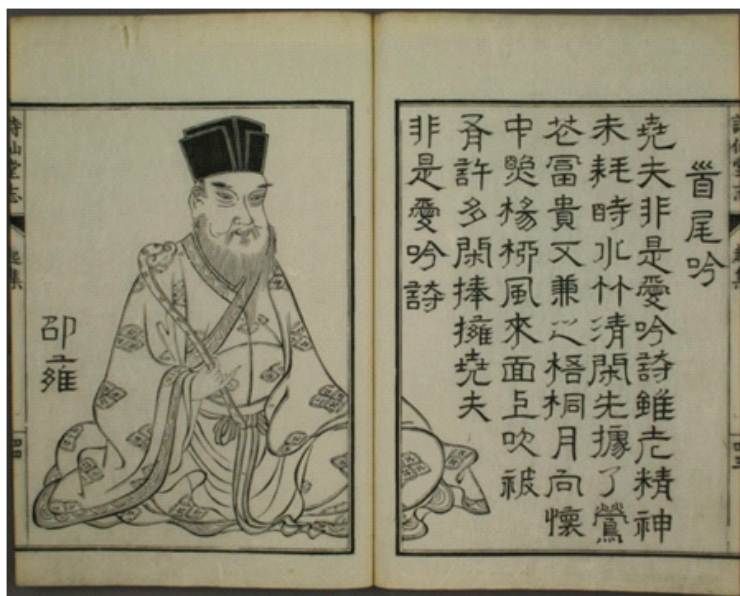 詩仙堂志
起集
首尾吟
堯夫非是愛吟詩雖老精神
未耗時水竹清閑先據了鶯
花富貴又兼之梧桐月向懷
中照楊柳風來面上吹被
有許多閑捧擁堯夫
非是愛吟詩
邵雍
詩仙堂志
起集